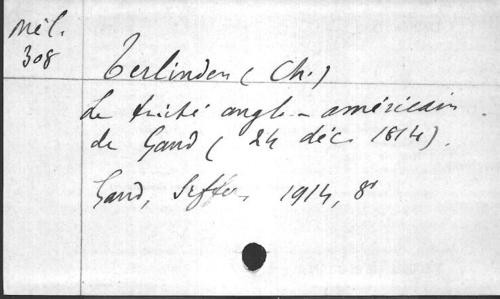 Mél.
308
Terlinden (Ch.)
Le traité anglo-américain
de Gand (24 déc. 1814).
Gand, 1914, 8°